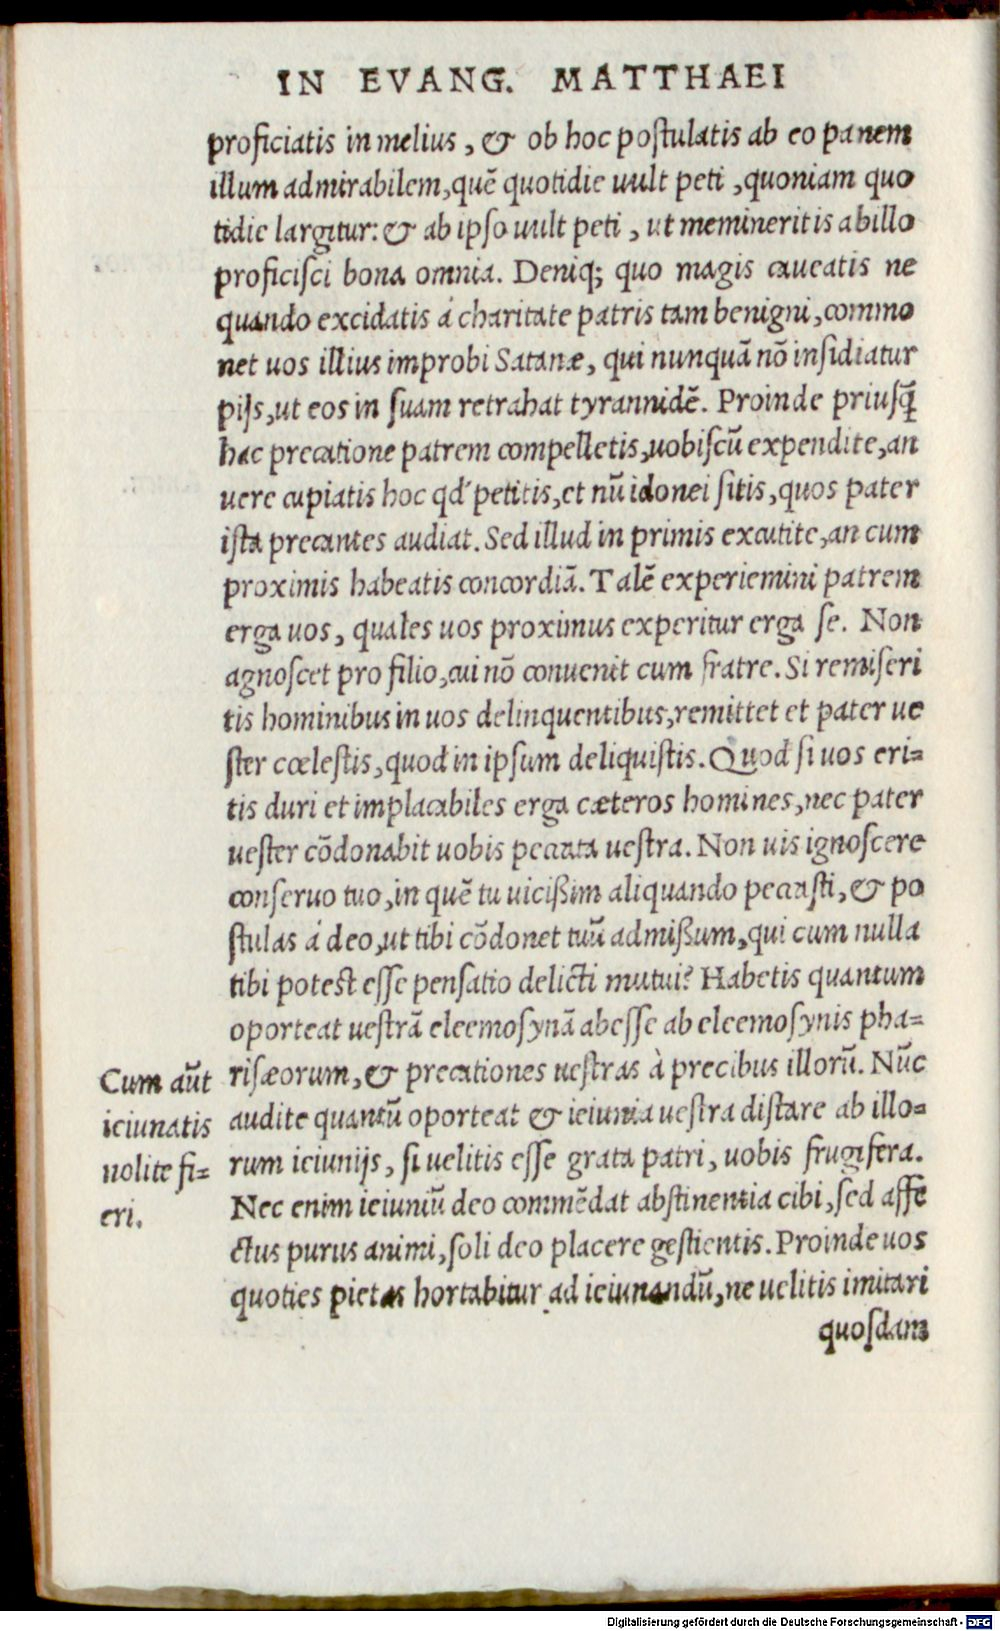 IN EVANG. MATTHAEI
proficiatis in melius, & ob hoc postulatis ab eo panem
illum admirabilem, quē quotidie uult peti, quoniam quo
tidie largitur: & ab ipso uult peti, ut memineritis ab illo
proficisci bona omnia. Deniq; quo magis caueatis ne
quando excidatis á charitate patris tam benigni, commo
net uos illius improbi Satanæ, qui nunquā nō insidiatur
pijs, ut eos in suam retrahat tyrannidē. Proinde priusq̄
hac precatione patrem compelletis, uobiscū expendite, an
uere cupiatis hoc qd' petitis, et nū idonei sitis, quos pater
ista precantes audiat. Sed illud in primis excutite, an cum
proximis habeatis concordiā. Talē experiemini patrem
erga uos, quales uos proximus experitur erga se. Non
agnoscet pro filio, cui nō conuenit cum fratre. Si remiseri
tis hominibus in uos delinquentibus, remittet et pater ue
ster cœlestis, quod in ipsum deliquistis. Quod si uos eri=
tis duri et implacabiles erga cæteros homines, nec pater
uester cōdonabit uobis peccata uestra. Non uis ignoscere
conseruo tuo, in quē tu uicißim aliquando peccasti, & po
stulas á deo, ut tibi cōdonet tuū admißum, qui cum nulla
tibi potest esse pensatio delicti mutui? Habetis quantum
oporteat uestrā eleemosynā abesse ab eleemosynis pha=
risæorum, & precationes uestras à precibus illorū. Nūc
audite quantū oporteat & ieiunia uestra distare ab illo=
rum ieiunijs, si uelitis esse grata patri, uobis frugifera.
Nec enim ieiuniū deo commēdat abstinentia cibi, sed affe
ctus purus animi, soli deo placere gestientis. Proinde uos
quoties pietas hortabitur ad ieiunandū, ne uelitis imitari
quosdam
Cum aūt
ieiunatis
nolite fi=
eri.
Digitalisierung gefördert durch die Deutsche Forschungsgemeinschaft - DFG